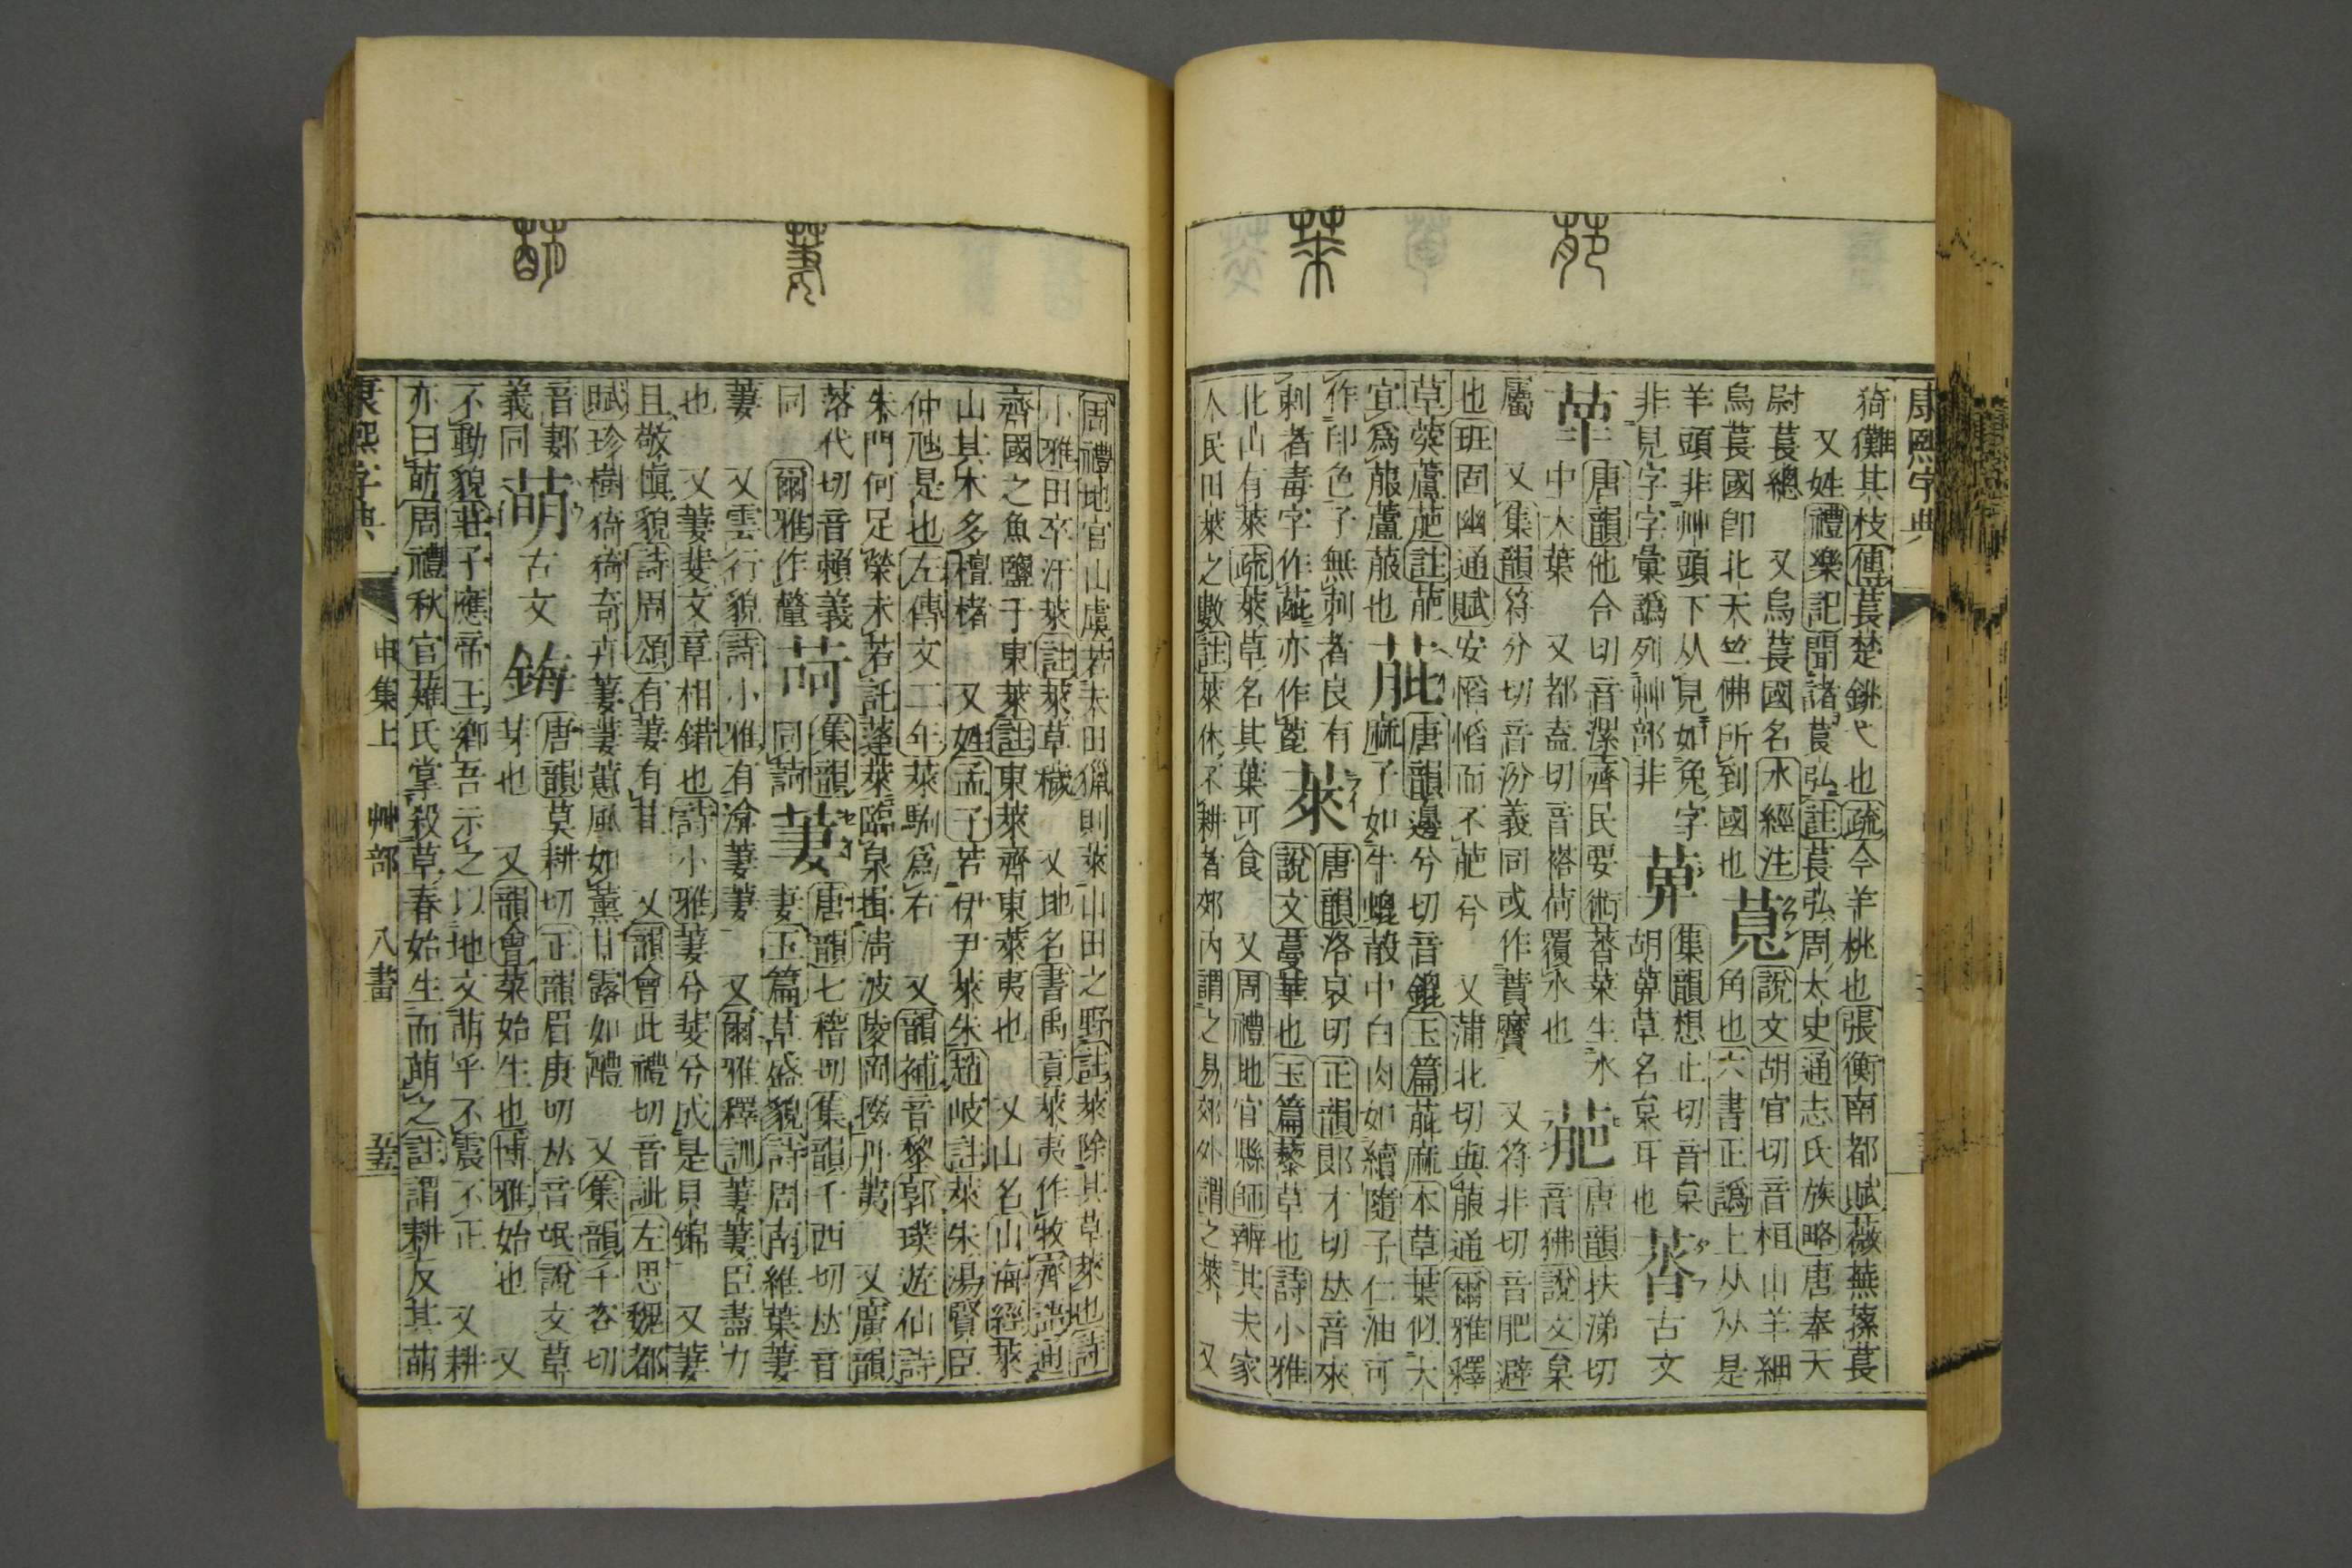 康熙字典
猗儺其枝傳萇楚銚弋也疏今羊桃也張衡南都賦薇蕪蓀萇
又姓禮樂記聞諸萇弘註萇弘周太史通志氏族略唐奉天
尉萇總 又烏萇國名水經注
烏萇國卽北天竺佛所到國也
萈
說文胡官切音桓山羊細
角也六書正譌上从
羊頭非艸頭下从見如兔字
非見字字彙譌列艸部非
萆
集韻想止切音枲
胡萆草名枲耳也
荅
古文
唐韻他合切音漯齊民要術荅菜生水
中大葉 又都盍切音褡荷覆水也
萉
唐韻扶涕切
音狒說文枲
屬 又集韻符分切音汾義同或作蕡黂 又符非切音肥避
也班固幽通賦安慆慆而不萉兮 又蒲北切與菔通爾雅釋
草葖蘆萉註萉
宜爲菔蘆菔也
萞
唐韻邊兮切音錍玉篇萞麻本草葉似大
麻子如牛蜱散中白肉如續隨子仁油可
作印色子無刺者良有
刺者毒字作萞亦作蓖
萊
唐韻洛哀切正韻郞才切𠀤音來
說文蔓華也玉篇藜草也詩小雅
北山有萊疏萊草名其葉可食 又周禮地官縣師辨其夫家
人民田萊之數註萊休不耕者郊內謂之易郊外謂之萊 又
周禮地官山虞若大田獵則萊山田之野註萊除其草萊也詩
小雅田卒汙萊註萊草穢 又地名書禹貢萊夷作牧齊語通
齊國之魚鹽于東萊註東萊齊東萊夷也 又山名山海經萊
山其木多檀楮 又姓孟子若伊尹萊朱趙岐註萊朱湯賢臣
仲虺是也左傳文二年萊駒爲右 又韻補音黎郭璞遊仙詩
朱門何足榮未若託蓬萊臨泉挹淸波陵岡掇丹荑 又廣韻
落代切音賴義
同 爾雅作釐
菏
集韻
同荷
萋
唐韻七稽切集韻千西切𠀤音
妻玉篇草盛貌詩周南維葉萋
萋 又雲行貌詩小雅有渰萋萋 又爾雅釋訓萋萋臣盡力
也 又萋斐文章相錯也詩小雅萋兮斐兮成是貝錦 又萋
且敬愼貌詩周頌有萋有且 又韻會此禮切音泚左思魏都
賦珍樹猗猗奇卉萋萋蕙風如薰甘露如醴 又集韻千咨切
音郪
義同
萌
古文
唐韻莫耕切正韻眉庚切𠀤音氓說文草
芽也 又韻會菜始生也博雅始也 又
不動貌莊子應帝王鄕吾示之以地文萌乎不震不正 又耕
亦曰萌周禮秋官薙氏掌殺草春始生而萌之註謂耕反其萌
康熙字典 申集上 艸部 八畫